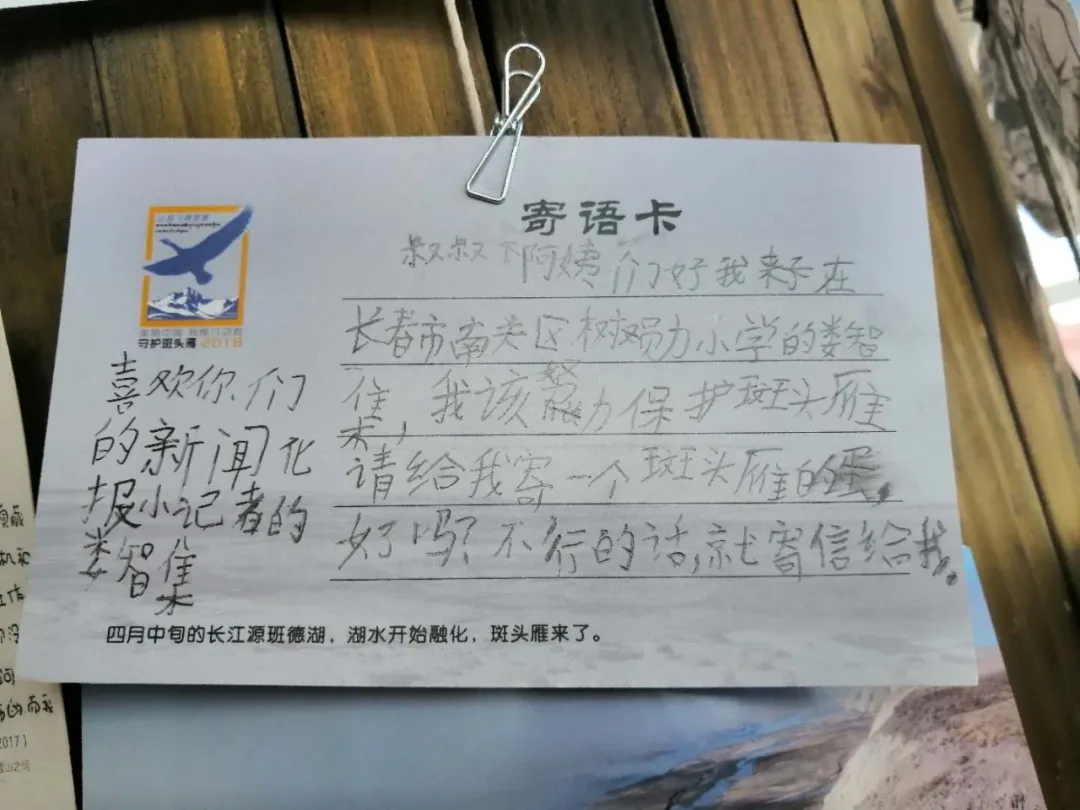 寄语卡
叔叔下阿姨们好我来在
长春市南关区树勋小学的娄智
集,我该努力保护斑头雁
请给我寄一个斑头雁的蛋,
好吗?不行的话,就寄信给我。
守护斑头雁 2018
喜欢你们
的新闻化
报小记者的
娄智集
四月中旬的长江源班德湖,湖水开始融化,斑头雁来了。
2017)